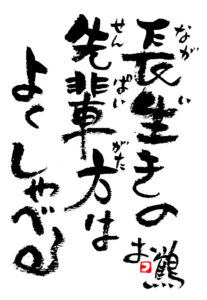 長生きの
先輩方は
よくしゃべる
なが
い
せん
ぱい
がた
お鶴